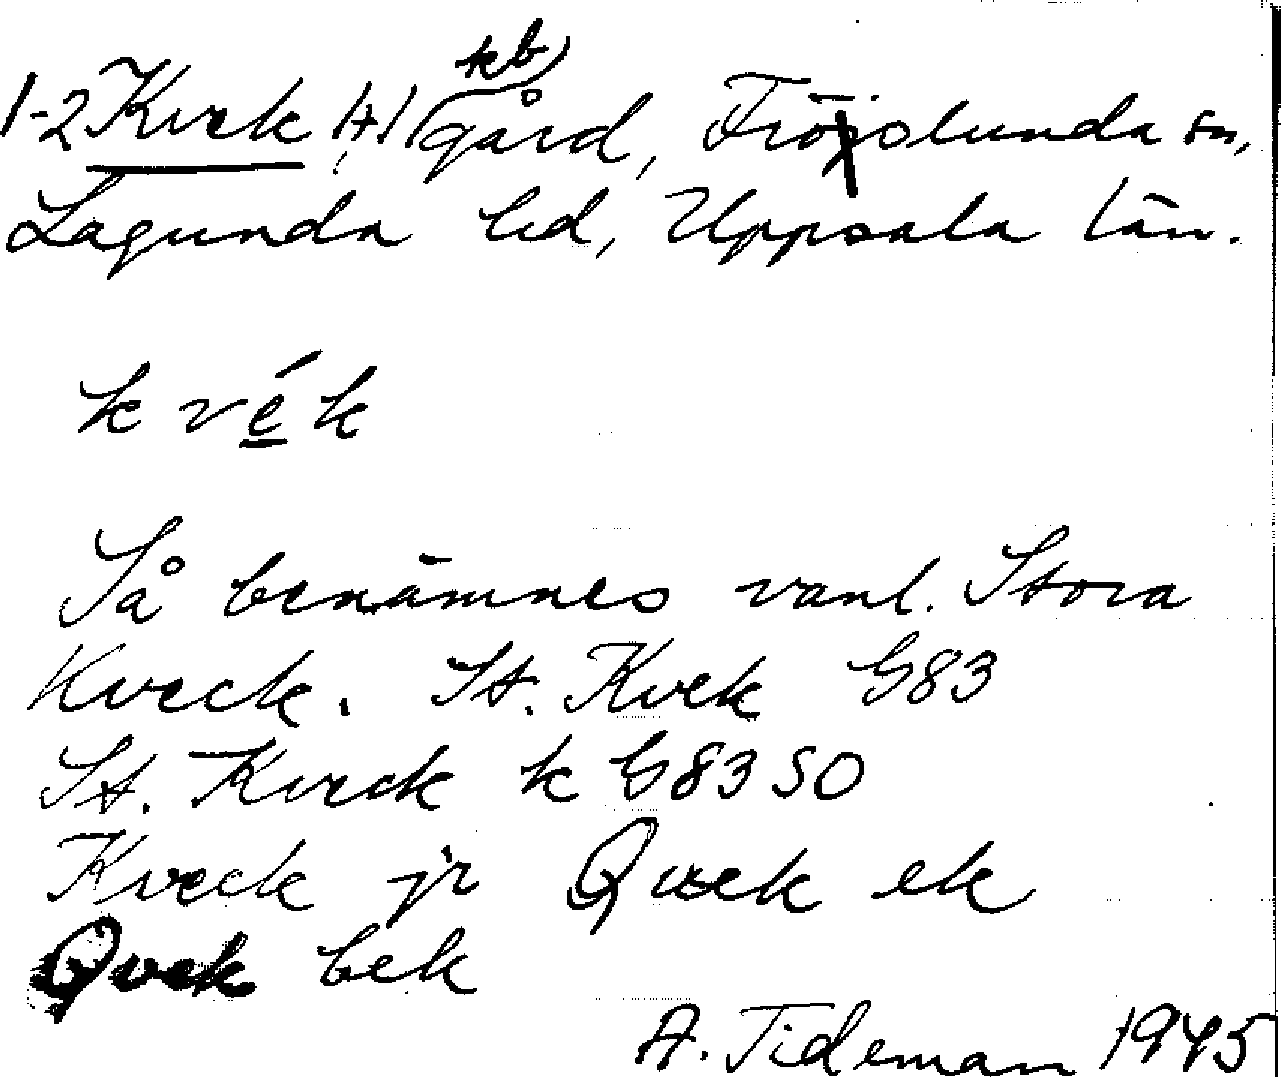 kb)
1-2 Kvek /+/ gård, Fröslunda sn,
Lagunda hd, Uppsala län.
k v é k
Så benämnes vanl. Stora
Kveck. St. Kvek G83
St. Kveck k G83 SO
Kveck jr Qveck ek
Qvek bek
A. Tideman 1945